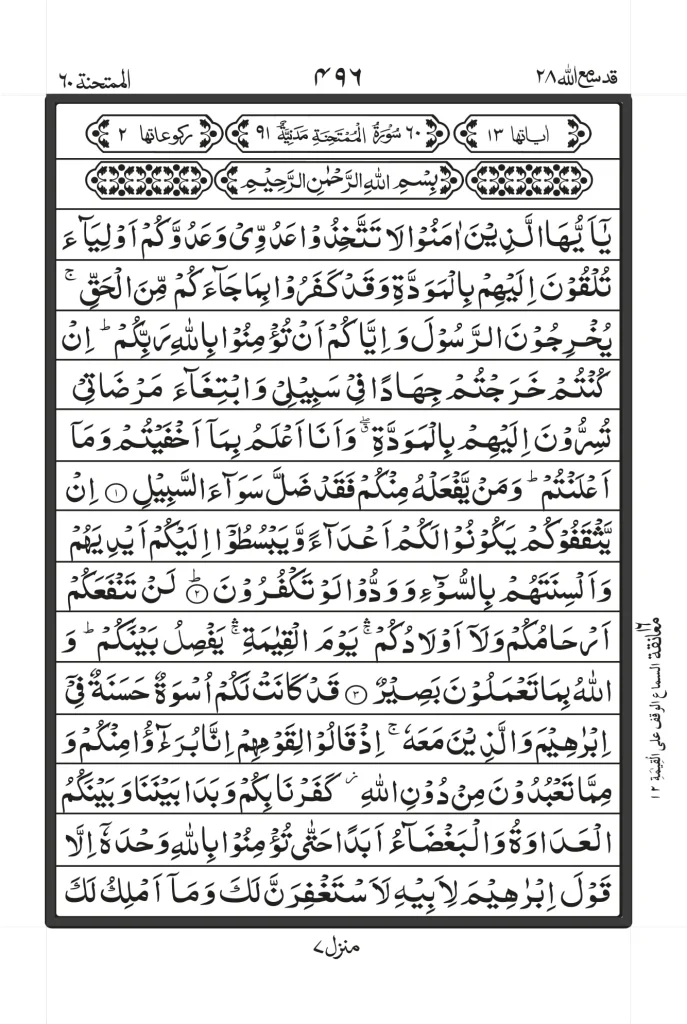 قد سمع الله ٢٨
٤٩٦
الممتحنة ٦٠
اٰیاتها ١٣
٦٠ سُوْرَةُ الْمُمْتَحِنَةِ مَدَنِيَّةٌ ٩١
رکوعاتها ٢
بِسْمِ اللّٰهِ الرَّحْمٰنِ الرَّحِيْمِ
يٰۤاَيُّهَا الَّذِيْنَ اٰمَنُوْا لَا تَتَّخِذُوْا عَدُوِّيْ وَعَدُوَّكُمْ اَوْلِيَآءَ
تُلْقُوْنَ اِلَيْهِمْ بِالْمَوَدَّةِ وَقَدْ كَفَرُوْا بِمَا جَآءَكُمْ مِّنَ الْحَقِّ ۚ
يُخْرِجُوْنَ الرَّسُوْلَ وَاِيَّاكُمْ اَنْ تُؤْمِنُوْا بِاللّٰهِ رَبِّكُمْ ؕ اِنْ
كُنْتُمْ خَرَجْتُمْ جِهَادًا فِيْ سَبِيْلِيْ وَابْتِغَآءَ مَرْضَاتِيْ
تُسِرُّوْنَ اِلَيْهِمْ بِالْمَوَدَّةِ ۖۗ وَاَنَا اَعْلَمُ بِمَاۤ اَخْفَيْتُمْ وَمَاۤ
اَعْلَنْتُمْ ؕ وَمَنْ يَّفْعَلْهُ مِنْكُمْ فَقَدْ ضَلَّ سَوَآءَ السَّبِيْلِ ١ اِنْ
يَّثْقَفُوْكُمْ يَكُوْنُوْا لَكُمْ اَعْدَآءً وَّيَبْسُطُوْۤا اِلَيْكُمْ اَيْدِيَهُمْ
وَاَلْسِنَتَهُمْ بِالسُّوْٓءِ وَوَدُّوْا لَوْ تَكْفُرُوْنَ ؕ٢ لَنْ تَنْفَعَكُمْ
اَرْحَامُكُمْ وَلَاۤ اَوْلَادُكُمْ ۛۚ يَوْمَ الْقِيٰمَةِ ۛۚ يَفْصِلُ بَيْنَكُمْ ؕ وَ
اللّٰهُ بِمَا تَعْمَلُوْنَ بَصِيْرٌ ٣ قَدْ كَانَتْ لَكُمْ اُسْوَةٌ حَسَنَةٌ فِيْۤ
اِبْرٰهِيْمَ وَالَّذِيْنَ مَعَهٗ ۚ اِذْ قَالُوْا لِقَوْمِهِمْ اِنَّا بُرَءٰٓؤُا مِنْكُمْ وَ
مِمَّا تَعْبُدُوْنَ مِنْ دُوْنِ اللّٰهِ ؗ كَفَرْنَا بِكُمْ وَبَدَا بَيْنَنَا وَبَيْنَكُمُ
الْعَدَاوَةُ وَالْبَغْضَآءُ اَبَدًا حَتّٰى تُؤْمِنُوْا بِاللّٰهِ وَحْدَهٗۤ اِلَّا
قَوْلَ اِبْرٰهِيْمَ لِاَبِيْهِ لَاَسْتَغْفِرَنَّ لَكَ وَمَاۤ اَمْلِكُ لَكَ
معانقة ١٦
السماع الوقف على القيمة ١٢
منزل ٧